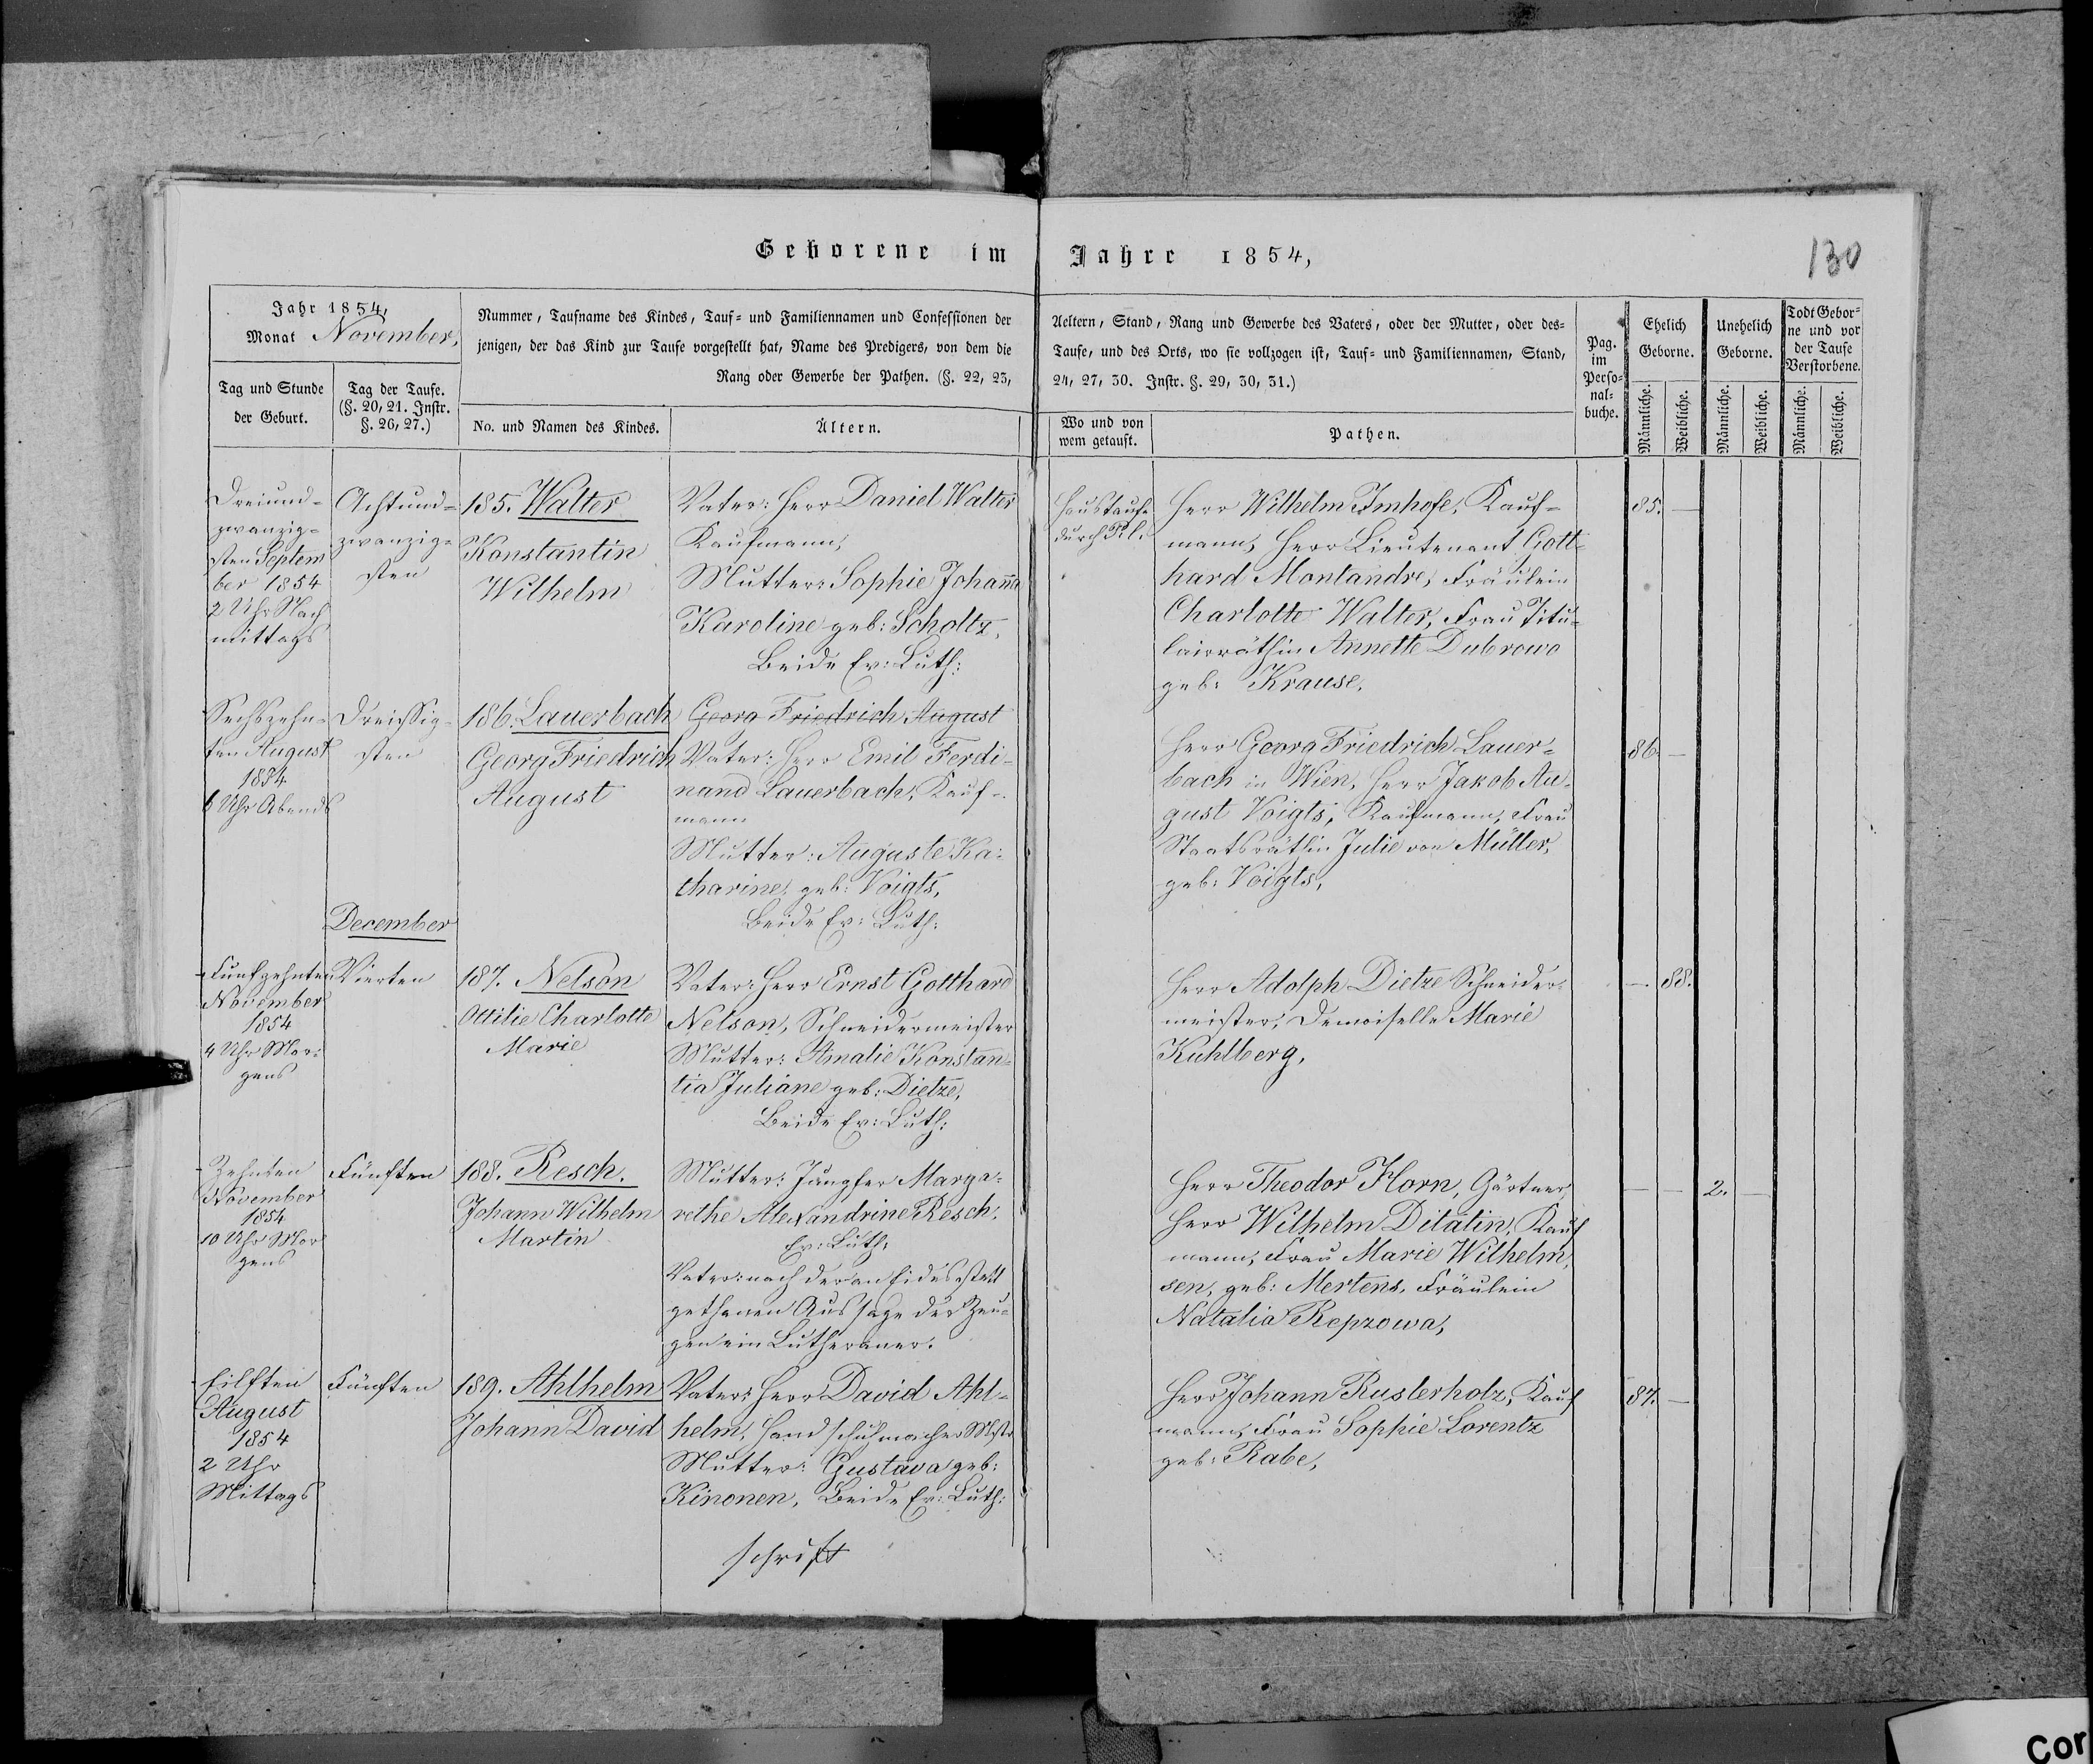 Geborene im Jahre 1854,
130
Jahr 1854,
Monat November,
Nummer, Taufname des Kindes, Tauf- und Familiennamen und Confessionen der
jenigen, der das Kind zur Taufe vorgestellt hat, Name des Predigers, von dem die
Rang oder Gewerbe der Pathen. (§. 22, 23,
Aeltern, Stand, Rang und Gewerbe des Vaters, oder der Mutter, oder des-
Taufe, und des Orts, wo sie vollzogen ist, Tauf- und Familiennamen, Stand,
24, 27, 30. Instr. §. 29, 30, 31.)
Pag.
im
Perso-
nal-
buche.
Ehelich
Geborne.
Unehelich
Geborne.
Todt Gebor-
ne und vor
der Taufe
Verstorbene.
Tag und Stunde
der Geburt.
Tag der Taufe.
(§. 20, 21. Instr.
§. 26, 27.)
No. und Namen des Kindes.
Ältern.
Wo und von
wem getauft.
Pathen.
Männliche.
Weibliche.
Männliche.
Weibliche.
Männliche.
Weibliche.
Dreiund-
zwanzig-
sten Septem
ber 1854
2 Uhr Nach
mittags
Achtund-
zwanzig-
sten
185. Walter
Konstantin
Wilhelm
Vater: Herr Daniel Walter
Kaufmann,
Mutter: Sophie Johanna
Karoline geb: Scholtz,
Beide Ev: Luth:
Haustaufe
durch
Herr Wilhelm Imhofe, Kauf-
mann, Herr Lieutenant Gott-
hard Montandre, Fräulein
Charlotte Walter, Frau Titu-
lairräthin Annette Dubrowo
geb: Krause,
85. —
Sechszehn-
ten August
1854
6 Uhr Abends
Dreissig-
sten
186. Lauerbach
Georg Friedrich
August
Georg Friedrich August
Vater: Herr Emil Ferdi-
nand Lauerbach, Kauf-
mann
Mutter: Auguste Ka-
tharine, geb: Voigts,
Beide Ev: Luth:
Herr Georg Friedrich Lauer-
bach in Wien, Herr Jakob Au-
gust Voigts, Kaufmann, Frau
Staatsräthin Julie von Müller,
geb: Voigts,
86. —
December
Funfzehnten
November
1854
4 Uhr Mor-
gens
Vierten
187. Nelson
Ottilie Charlotte
Marie
Vater: Herr Ernst Gotthard
Nelson, Schneidermeister
Mutter: Amalie Konstan-
tia Juliane geb: Dietze,
Beide Ev: Luth:
Herr Adolph Dietze Schneider-
meister, Demoiselle Marie
Kuhlberg,
— 88.
Zehnten
November
1854
10 Uhr Mor
gens
Fünften
188. Resch.
Johann Wilhelm
Martin
Mutter: Jungfer Marga-
rethe Alexandrine Resch,
Ev: Luth:
Vater: nach der an Eides statt
gethanen Aussage der Zeu-
gen ein Lutheraner.
Herr Theodor Horn, Gärtner,
Herr Wilhelm Ditatin, Kauf
mann, Frau Marie Wilhelm,
sen, geb: Mertens, Fräulein
Natalia Repzowa,
— — 2. —
Eilften
August
1854
2 Uhr
Mittags
Fünften
189. Ahlhelm
Johann David
Vater: Herr David Ahl-
helm, Handschuhmacher Mstr
Mutter: Gustava geb:
Kinonen, Beide Ev: Luth:
Herr Johann Rusterholz, Kauf
mann, Frau Sophie Lorentz
geb: Rabe,
87. —
schrift
Cor